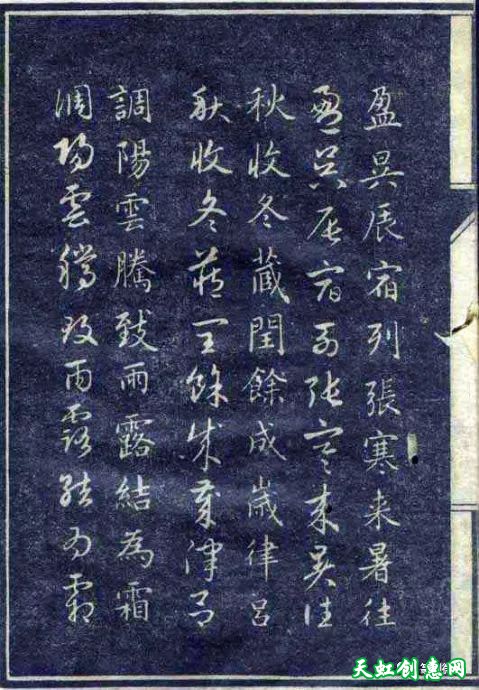 盈昃辰宿列張寒来暑往
盈昃辰宿列張寒来暑往
秋收冬蔵閏餘成歲律呂
秋收冬蔵閏餘成歲律呂
調陽雲騰致雨露結為霜
調陽雲騰致雨露結為霜
天虹创意网